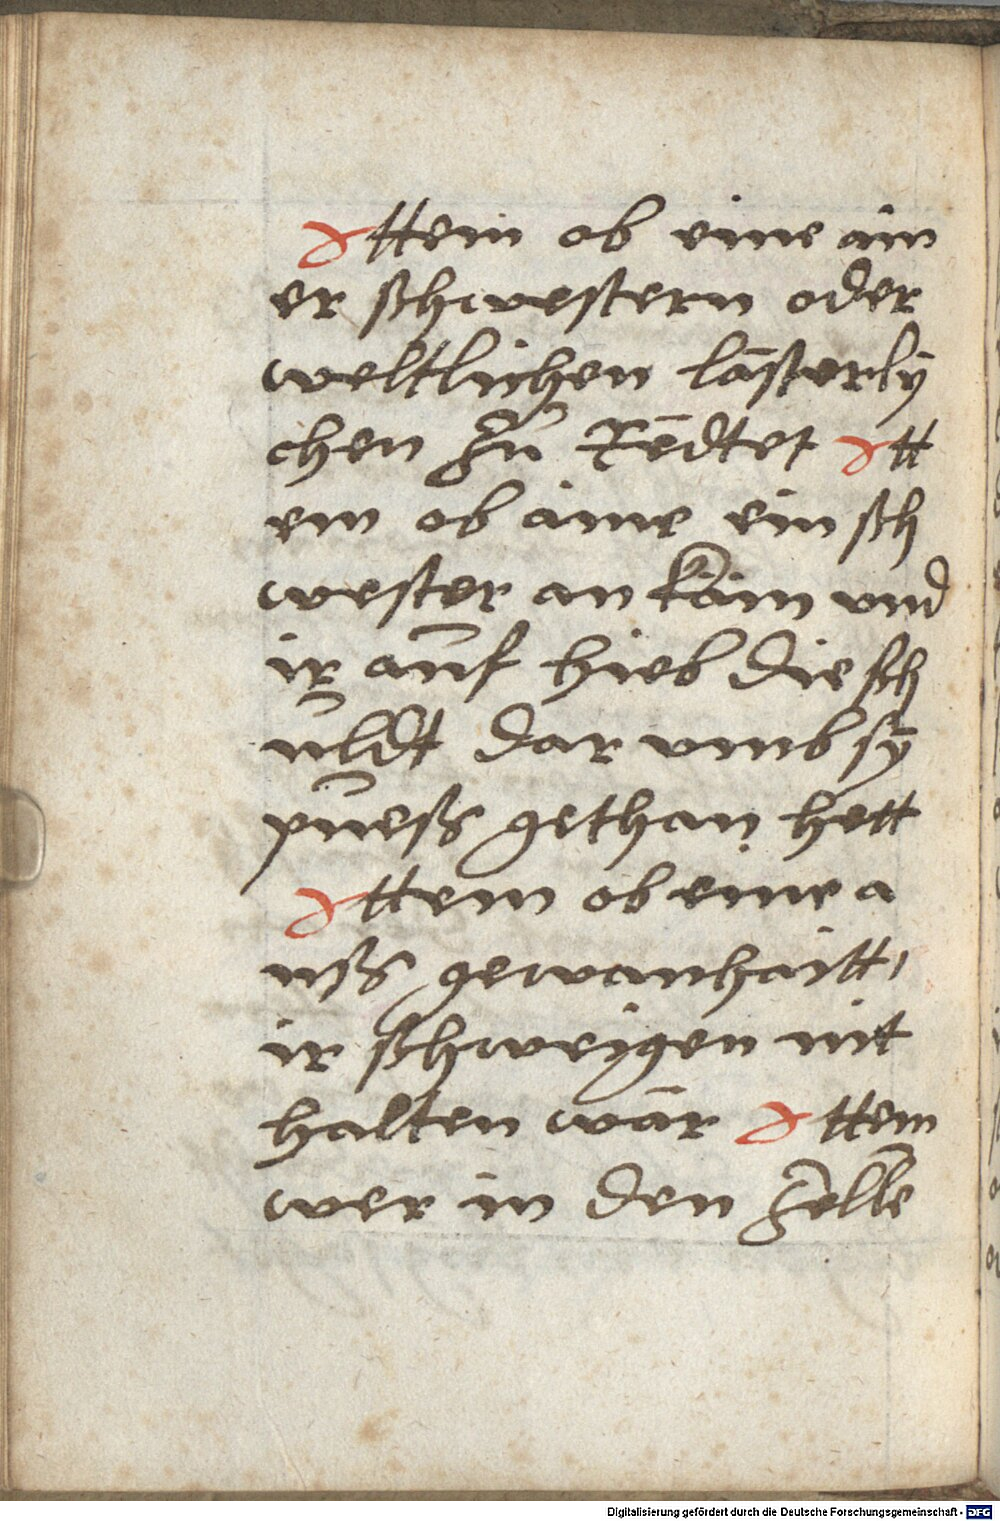 Ittem ob eine ain
er schwestern oder
weltlichen lästerly
chen zů Redtet Itt
em ob aine ein sch
wester an käm vnd
ir aůf hieb die sch
ůldt dar vmb sy
půesß gethan hett
Ittem ob eine a
usß gewanhaitt
ir schweigen nit
halten wär Ittem
wer in den zelle
Digitalisierung gefördert durch die Deutsche Forschungsgemeinschaft - DFG